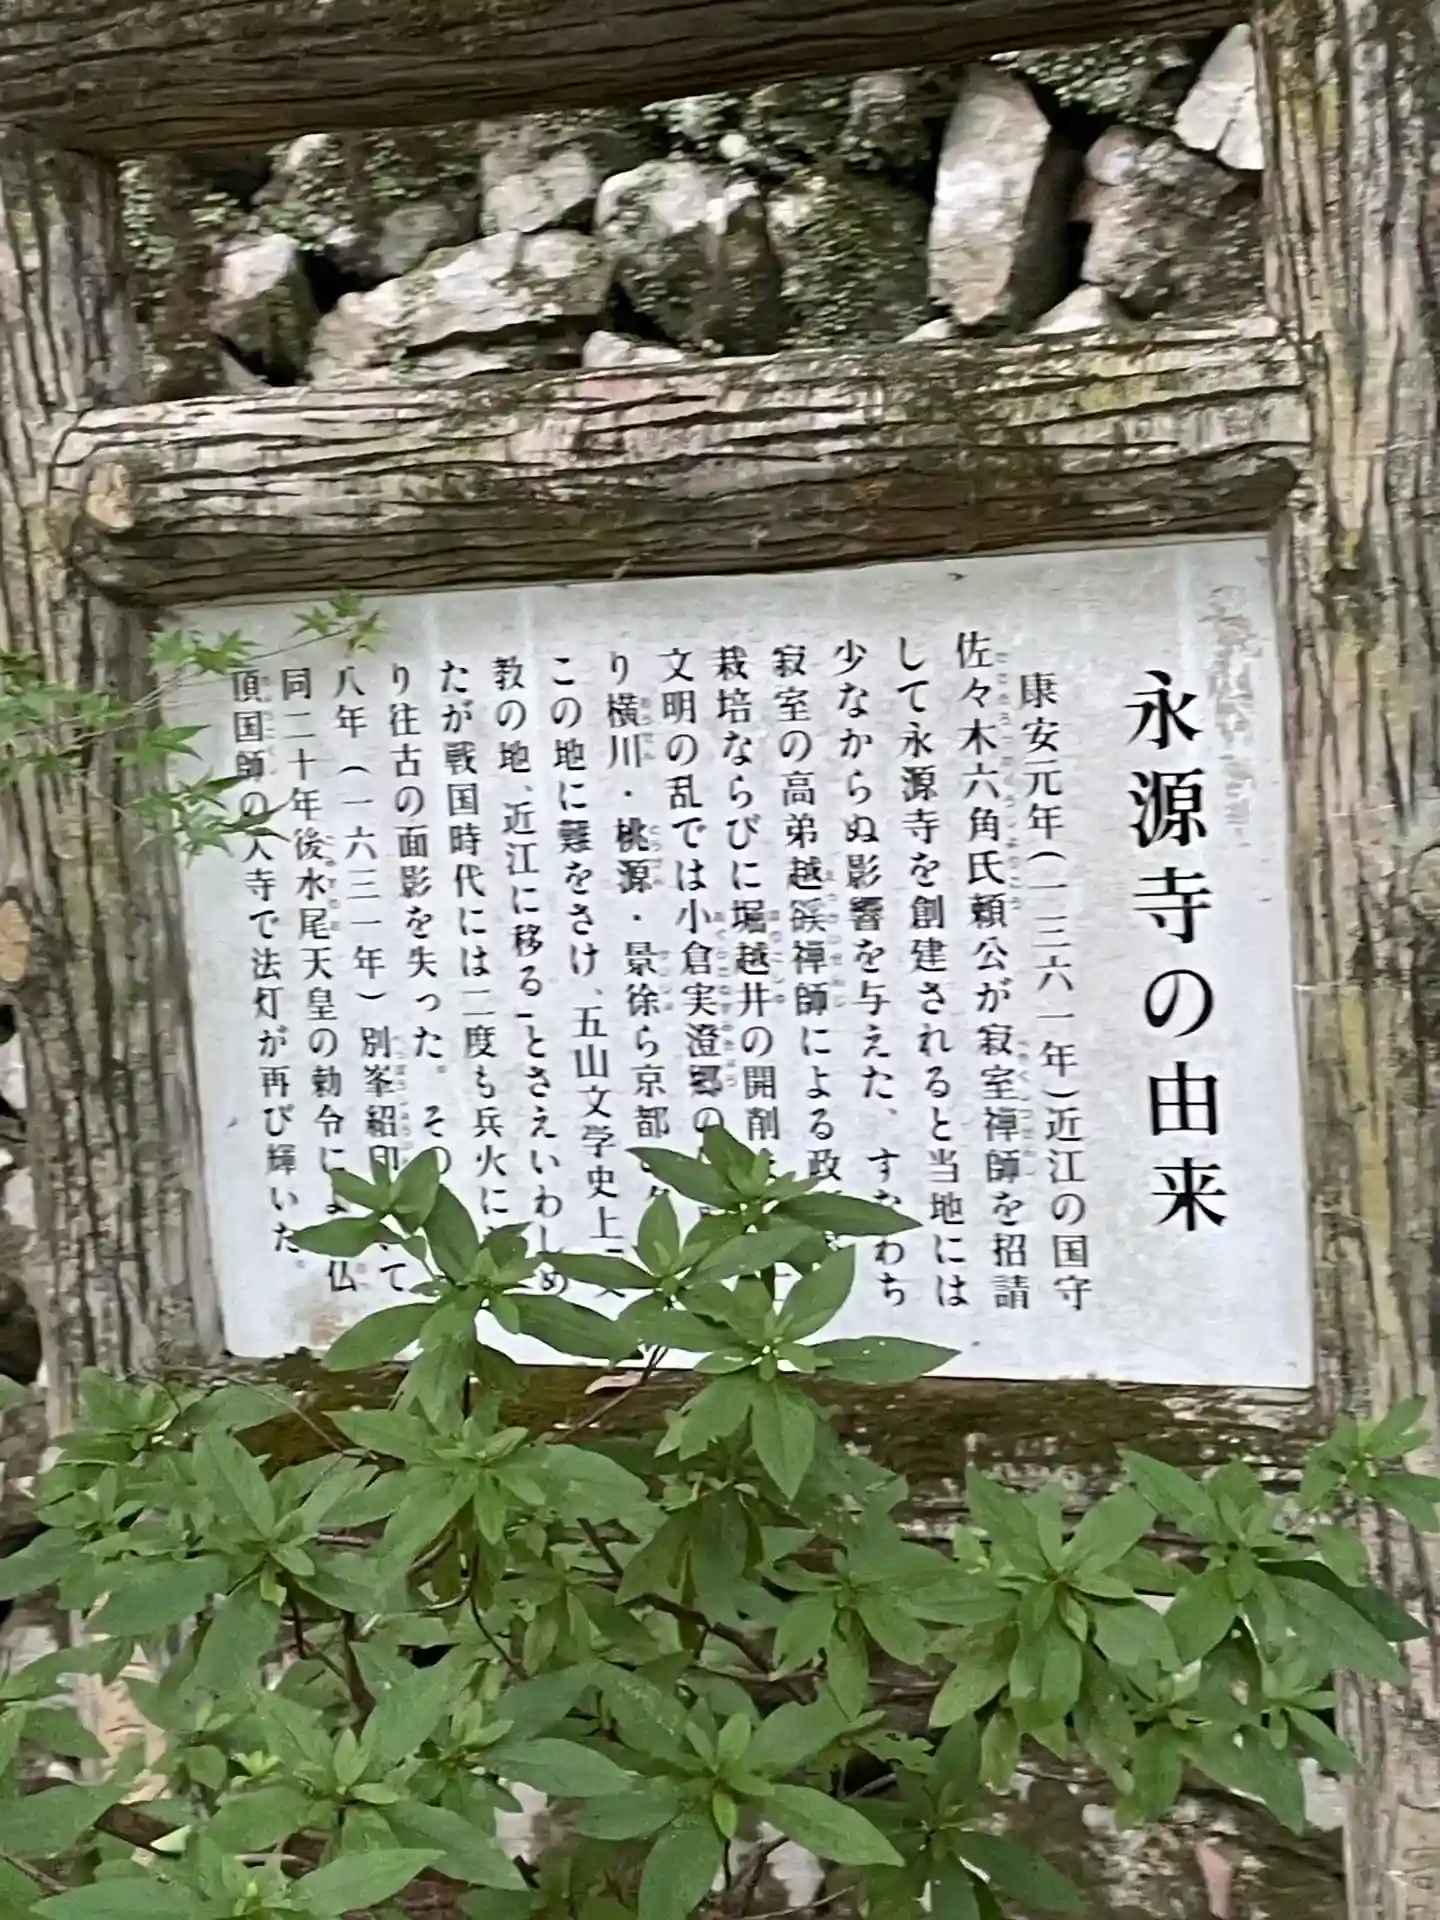 永源寺の由来
康安元年(一三六一年)近江の国守
佐々木六角氏頼公が寂室禅師を招請
して永源寺を創建されると当地には
少なからぬ影響を与えた、すなわち
寂室の高弟越渓禅師による政
栽培ならびに堀越井の開削
文明の乱では小倉実澄郷の
り横川・桃源・景徐ら京都
この地に難をさけ、五山文学史上「文
教の地、近江に移る」とさえいわしめ
たが戦国時代には二度も兵火に
り往古の面影を失った。その
八年(一六三一年)別峯紹印 て
同二十年後水尾天皇の勅令によ 仏
頂国師の入寺で法灯が再び輝いた。